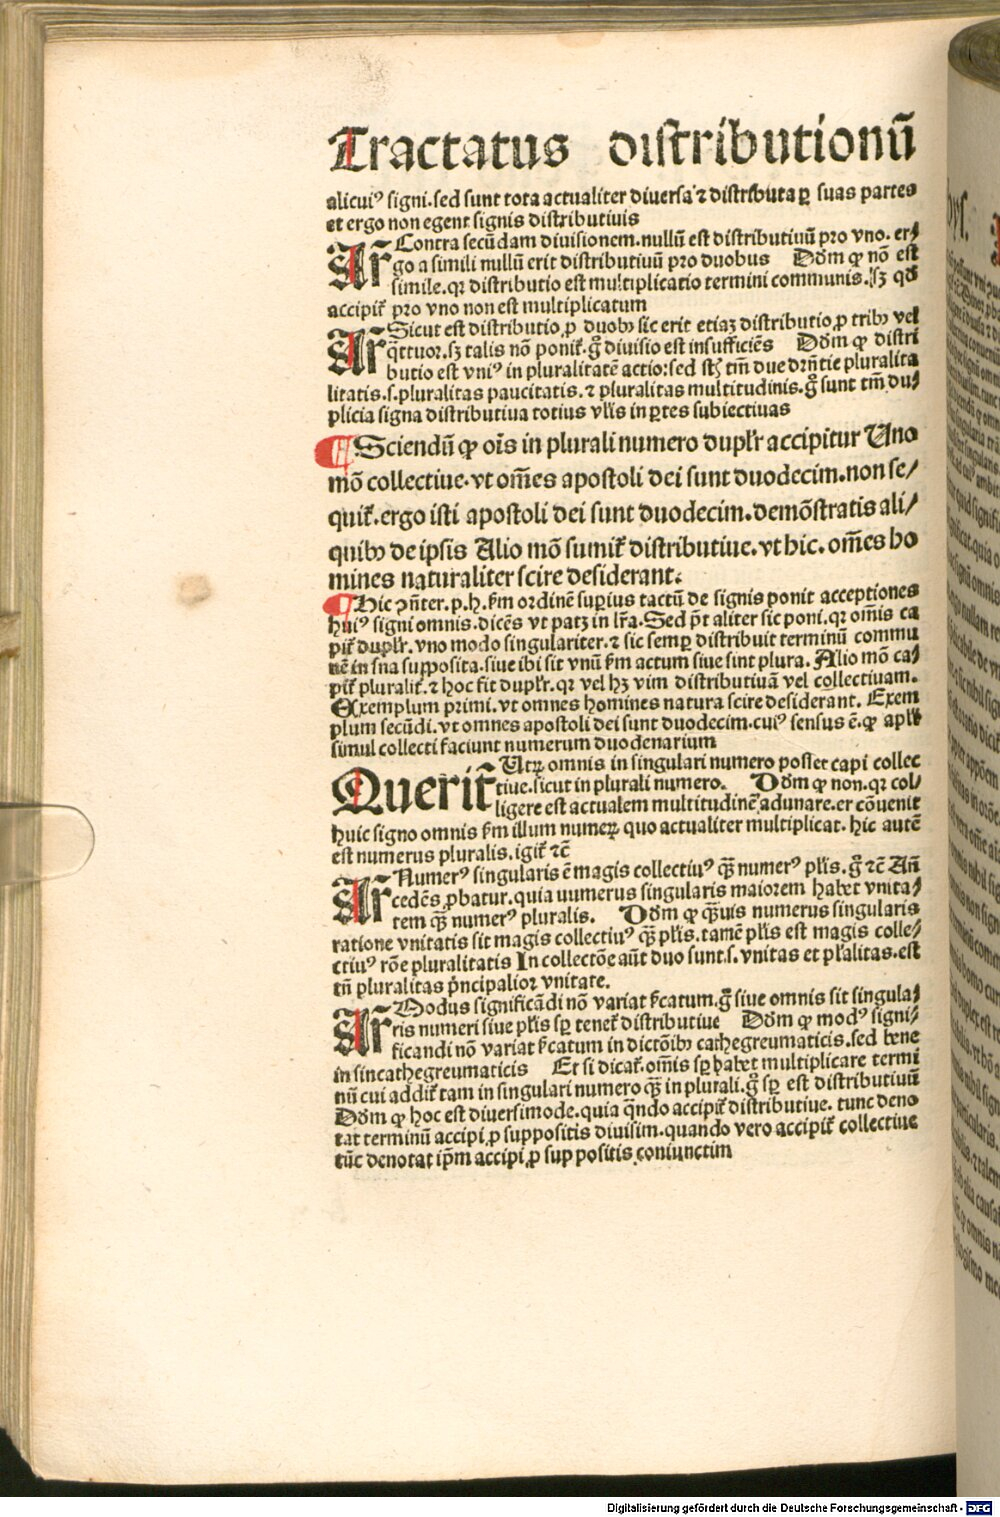 Tractatus distributionū
alicuiꝰ signi. sed sunt tota actualiter diuersa ⁊ distributa ꝑ suas partes
et ergo non egent signis distributiuis
Ar̄ Contra secūdam diuisionem. nullū est distributiuū pro vno. er⸗
go a simili nullū erit distributiuū pro duobus Dōm ꝙ nō est
simile. qꝛ distributio est multiplicatio termini communis. sꝫ qd̓
accipit̄ pro vno non est multiplicatum
Ar̄ Sicut est distributio ꝓ duobꝰ sic erit etiaꝫ distributio ꝓ tribꝰ vel
q̄ttuor. sꝫ talis nō ponit̄. g̊ diuisio est insufficiēs Dōm ꝙ distri
butio est vniꝰ in pluralitatē actio: sed st̄ tm̄ due dr̄ntie pluralita
litatis. s. pluralitas paucitatis. ⁊ pluralitas multitudinis. g̊ sunt tm̄ du⸗
plicia signa distributiua totius vl̓is in ꝑtes subiectiuas
¶ Sciendū ꝙ oīs in plurali numero duplr̄ accipitur Uno
mō collectiue. vt oēs apostoli dei sunt duodecim. non se⸗
quit̄. ergo isti apostoli dei sunt duodecim. demōstratis ali⸗
quibꝰ de ipsis Alio mō sumit̄ distributiue. vt hic. om̄es ho
mines naturaliter scire desiderant.
¶ Hic ꝯñter. p. h. ẜm ordinē suꝑius tactū de signis ponit acceptiones
huiꝰ signi omnis. dicēs vt patꝫ in lr̄a. Sed p̄t aliter sic poni. qꝛ om̄is ca
pit̄ duplr̄. vno modo singulariter. ⁊ sic semꝑ distribuit terminū commu
nē in sua supposita. siue ibi sit vnū ẜm actum siue sint plura. Alio mō ca⸗
pit̄ pluralit̄. ⁊ hoc fit duplr̄. qꝛ vel hꝫ vim distributiuā vel collectiuam.
Exemplum primi. vt omnes homines natura scire desiderant. Exem
plum secūdi. vt omnes apostoli dei sunt duodecim. cuiꝰ sensus ē. ꝙ apl̓i
simul collecti faciunt numerum duodenarium
Querit̄ Utꝝ omnis in singulari numero posset capi collec
tiue. sicut in plurali numero. Dōm ꝙ non. qꝛ col⸗
ligere est actualem multitudinē adunare. er cōuenit
huic signo omnis ẜm illum numeꝝ quo actualiter multiplicat. hic autē
est numerus pluralis. igit̄ ⁊c̄
Ar̄ Numerꝰ singularis ē magis collectiuꝰ q̄ꝫ numerꝰ pl̓is. g̊ ⁊c̄ Añ
cedēs ꝓbatur. quia uumerus singularis maiorem habet vnita⸗
tem q̄ꝫ numerꝰ pluralis. Dōm ꝙ q̄ꝫuis numerus singularis
ratione vnitatis sit magis collectiuꝰ q̄ꝫ pl̓is. tamē pl̓is est magis colle⸗
ctiuꝰ rōe pluralitatis In collectōe aūt duo sunt. s. vnitas et pl̓alitas. est
tñ pluralitas p̄ncipalior vnitate.
Ar̄ Modus significādi nō variat ẜcatum. g̊ siue omnis sit singula⸗
ris numeri siue pl̓is sꝑ tenet̄ distributiue Dōm ꝙ modꝰ signi⸗
ficandi nō variat ẜcatum in dictōibꝰ cathegreumaticis. sed bene
in sincathegreumaticis Et si dicat̄. om̄is sꝑ habet multiplicare termi
nū cui addit̄ tam in singulari numero q̄ꝫ in plurali. g̊ sꝑ est distributiuū
Dōm ꝙ hoc est diuersimode. quia q̄ndo accipit̄ distributiue. tunc deno
tat terminū accipi ꝓ suppositis diuisim. quando vero accipit̄ collectiue
tūc denotat ip̄m accipi ꝓ sup positis coniunctim
Digitalisierung gefördert durch die Deutsche Forschungsgemeinschaft - DFG